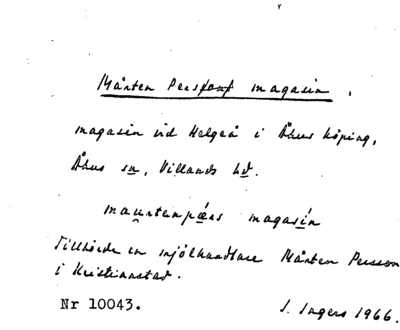 Mårten Pers magasin.
magasin vid Helgeå i Åhus köping,
Åhus sn, Villands hd.
mauntenpæns magasin
Tillhörde en mjölhandlare Mårten Persson
i Kristianstad.
Nr 10043. I. Ingers 1966.